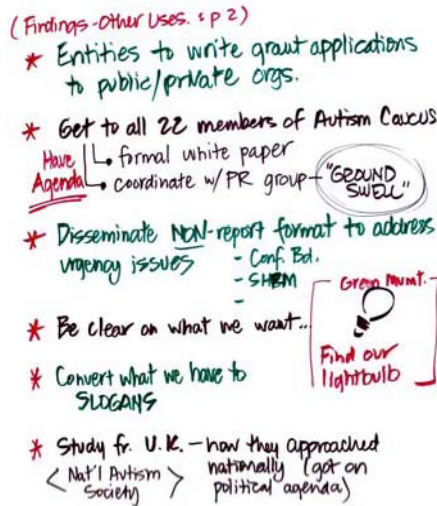 (Findings-Other Uses: p2)
* Entities to write grant applications
to public/private orgs.
* Get to all 22 members of Autism Caucus
Have
Agenda
formal white paper
coordinate w/ PR group - "GROUND
SWELL"
* Disseminate NON-report format to address
urgency issues
- Conf. Bd.
- SHRM
-
Green Mvmt.
Find our
lightbulb
* Be clear on what we want...
* Convert what we have to
SLOGANS
* Study fr. U.K. - how they approached
nationally (got on
political agenda)
< Nat'l Autism
Society >